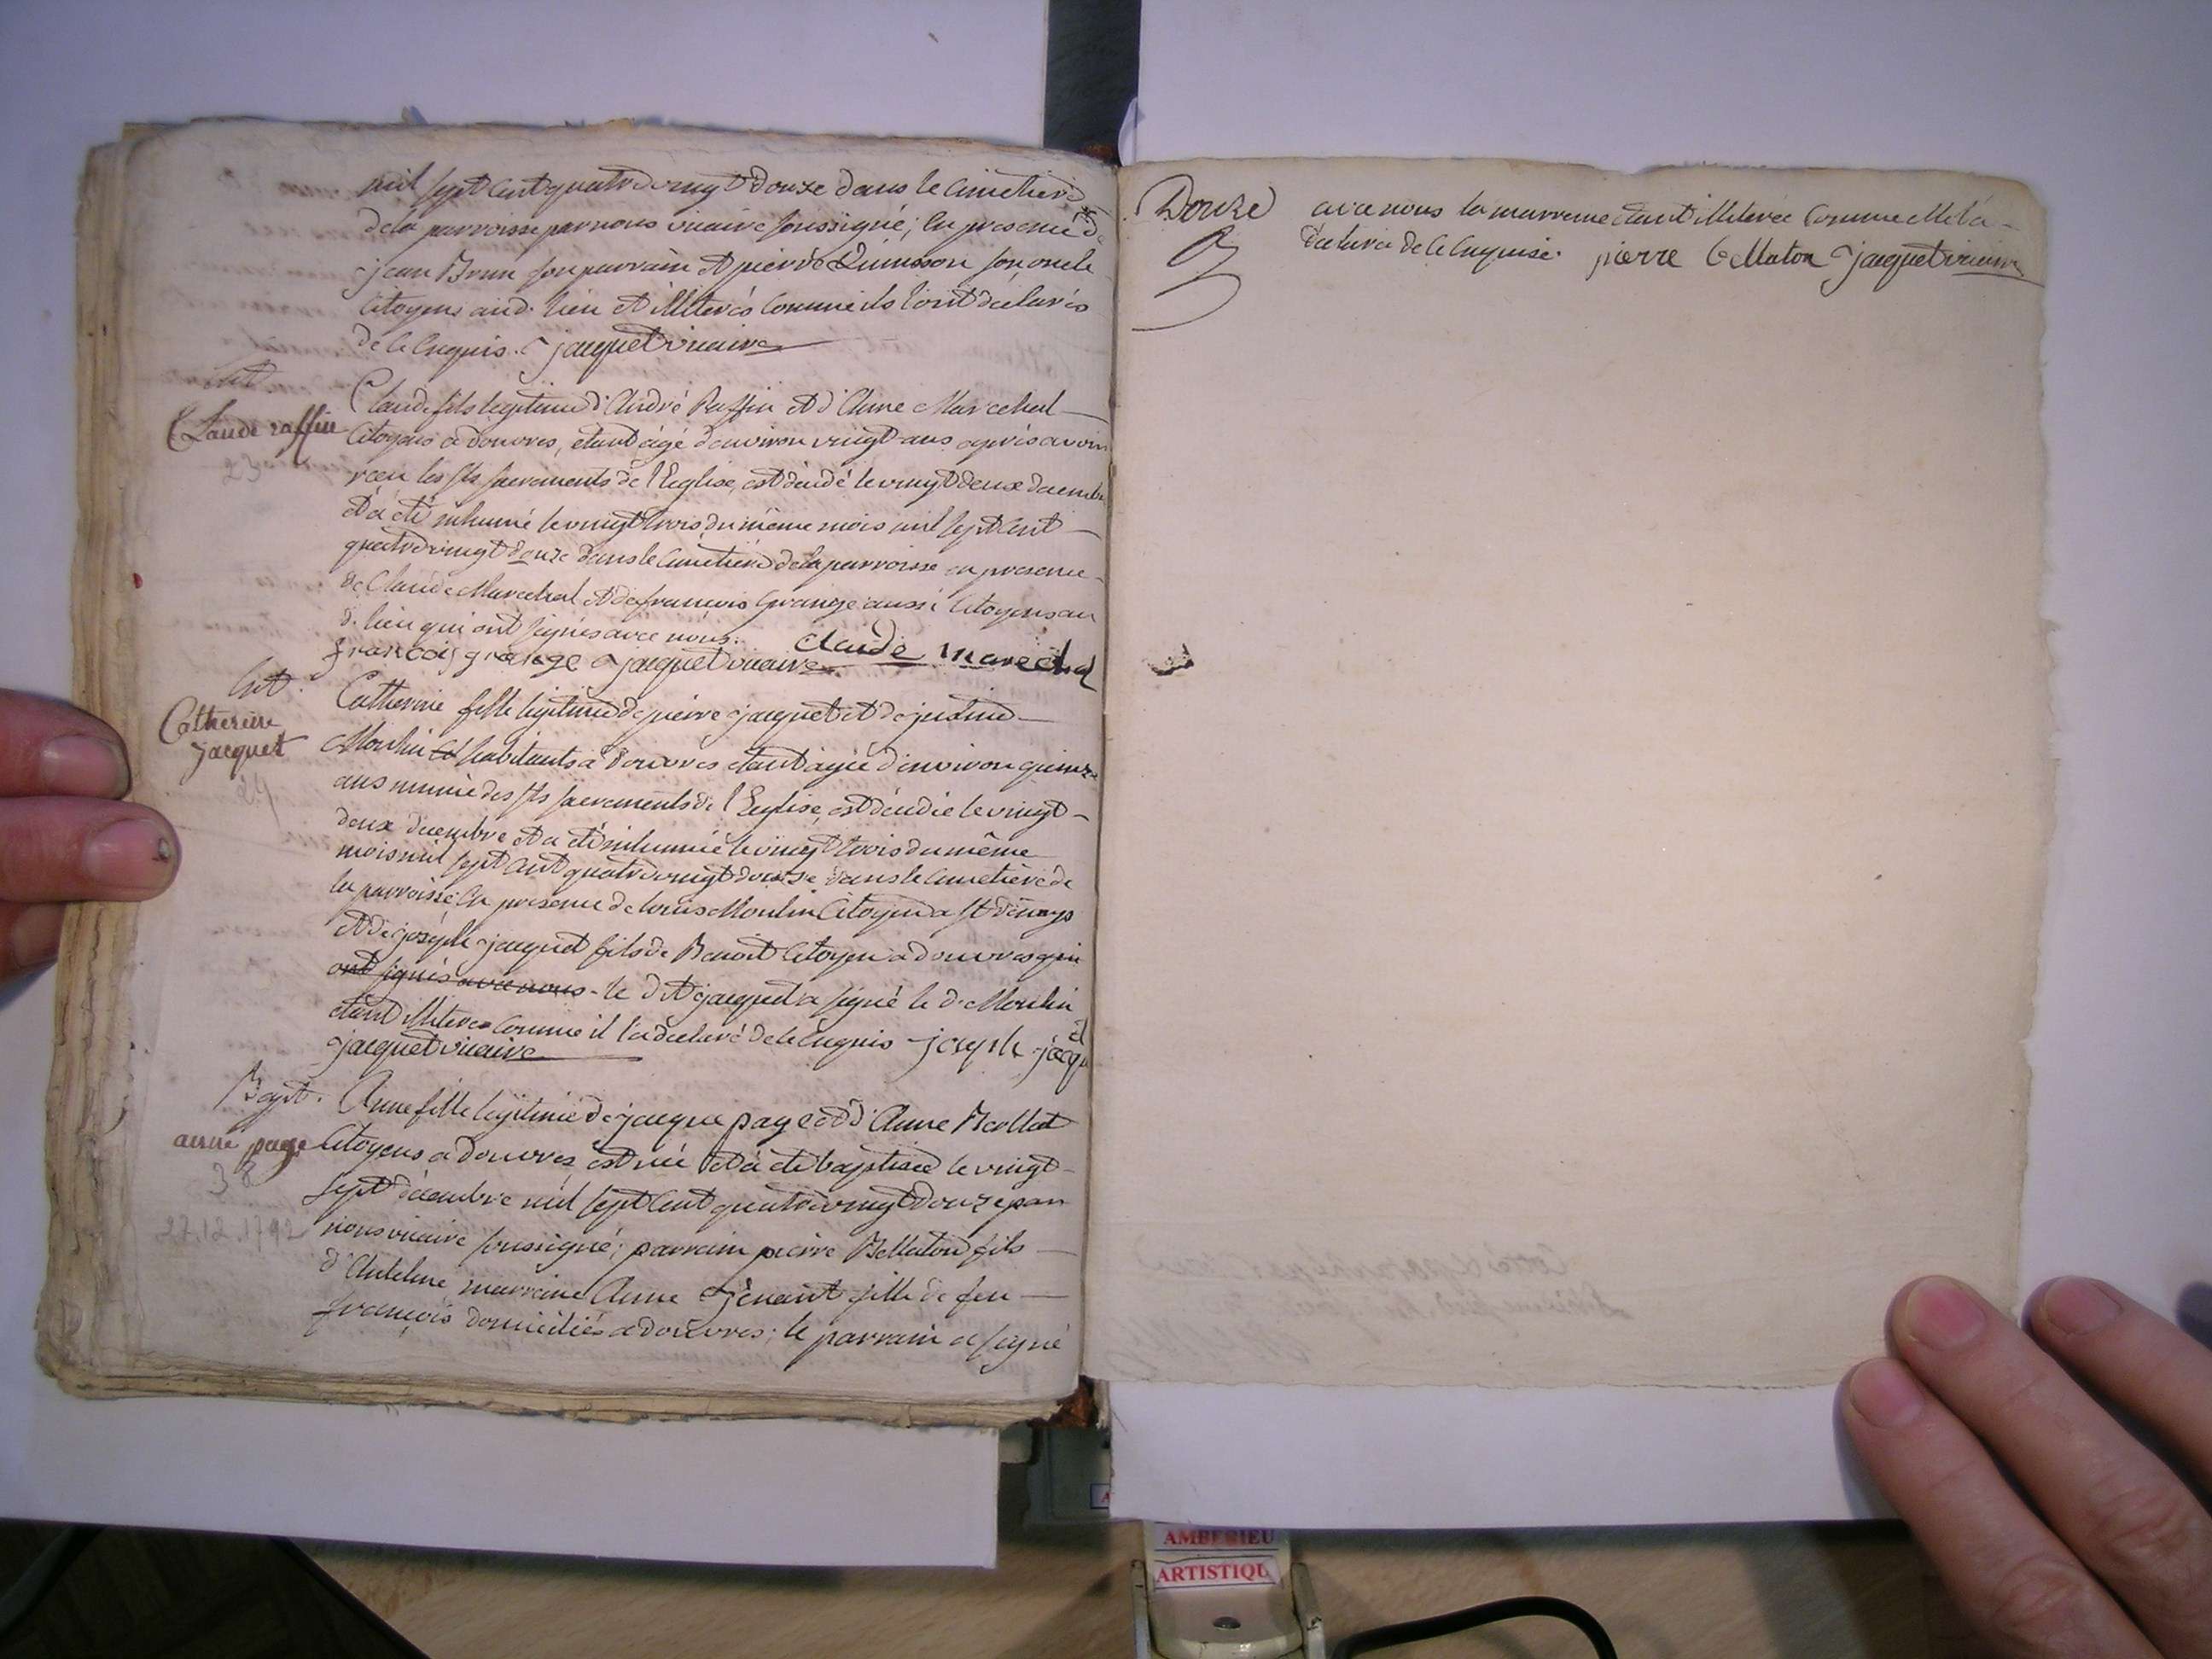 mil sept cent quatre vingt douze dans le Cimetiere
de la parroisse par nous vicaire soussigné; en presence de
jean Brun son parrain et pierre Quinsson son oncle
Citoyens aud. lieu et illiterés comme ils l'ont déclarés
de ce enquis. jacquet vicaire
Claude raffin
23
Claude fils légitime d'André Raffin et d'Anne Marechal
Citoyens a douvres, etant agé d'environ vingt ans après avoir
reçu les sts sacrements de l'Eglise, est décédé le vingt deux decembre
et a été inhumé le vingt trois du même mois mil sept cent
quatre vingt douze dans le Cimetiere de la parroisse en presence
de Claude Marechal et de françois Grange aussi Citoyens au
d. lieu qui ont signés avec nous. claude marechal
francois grange jacquet vicaire
Catherine
jacquet
24
Catherine fille légitime de pierre jacquet et de justine
Moulin et habitants a douvres etant agée d'environ quinze
ans munie des sts sacrements de l'Eglise, est décédée le vingt
deux decembre et a eté inhumée le vingt trois du même
mois mil sept cent quatre vingt douze dans le Cimetière de
la parroisse en presence de louis Moulin Citoyen a st denys
et de joseph jacquet fils de Benoit Citoyen a douvres qui
ont signés avec nous - le dit jacquet a signé le d. Moulin
etant illiteré comme il l'a declaré de ce enquis joseph jacquet
jacquet vicaire
Bapt.
anne page
38
27.12.1792
Anne fille legitime de jacque page et d'Anne Bellat
Citoyens a douvres est née et a eté baptisée le vingt
sept décembre mil sept cent quatre vingt douze par
nous vicaire soussigné; parrain pierre Bellaton fils
d'Antelme, marraine Anne Tenant fille de feu
françois domiciliés a douvres; le parrain a signé
Douze
avec nous la marraine etant illiterée comme elle l'a
déclaré de ce enquise. pierre bellaton jacquet vicaire
AMBERIEU
ARTISTIQU